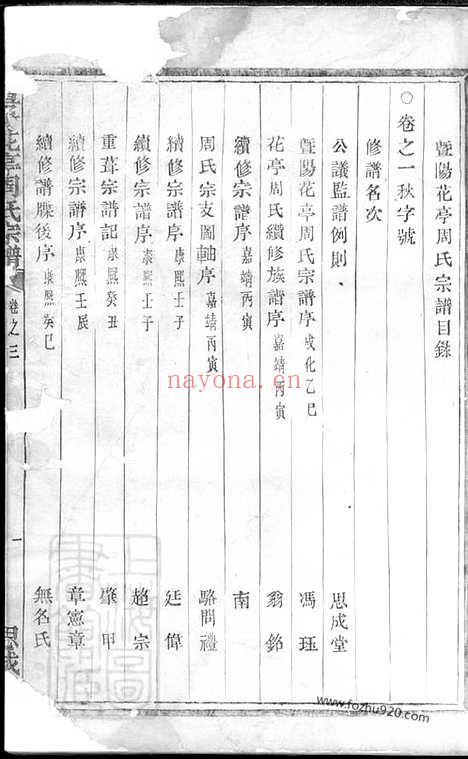 暨陽花亭周氏宗譜目錄
○卷之一秋字號
修譜名次
公議監譜例則 思成堂
暨陽花亭周氏宗譜序 成化乙巳 馮珏
花亭周氏續修族譜序 嘉靖丙寅 翁銘
續修宗譜序 嘉靖丙寅 南
周氏宗支圖軸序 嘉靖丙寅 駱問禮
續修宗譜序 康熙壬子 廷偉
續修宗譜序 康熙壬子 趙宗
重葺宗譜記 康熙癸丑 肇甲
續修宗譜序 康熙壬辰 章憲章
續修譜牒後序 康熙癸巳 無名氏
花亭周氏宗譜 卷之三 一 思成
nayona.cn
www.fozhu920.com